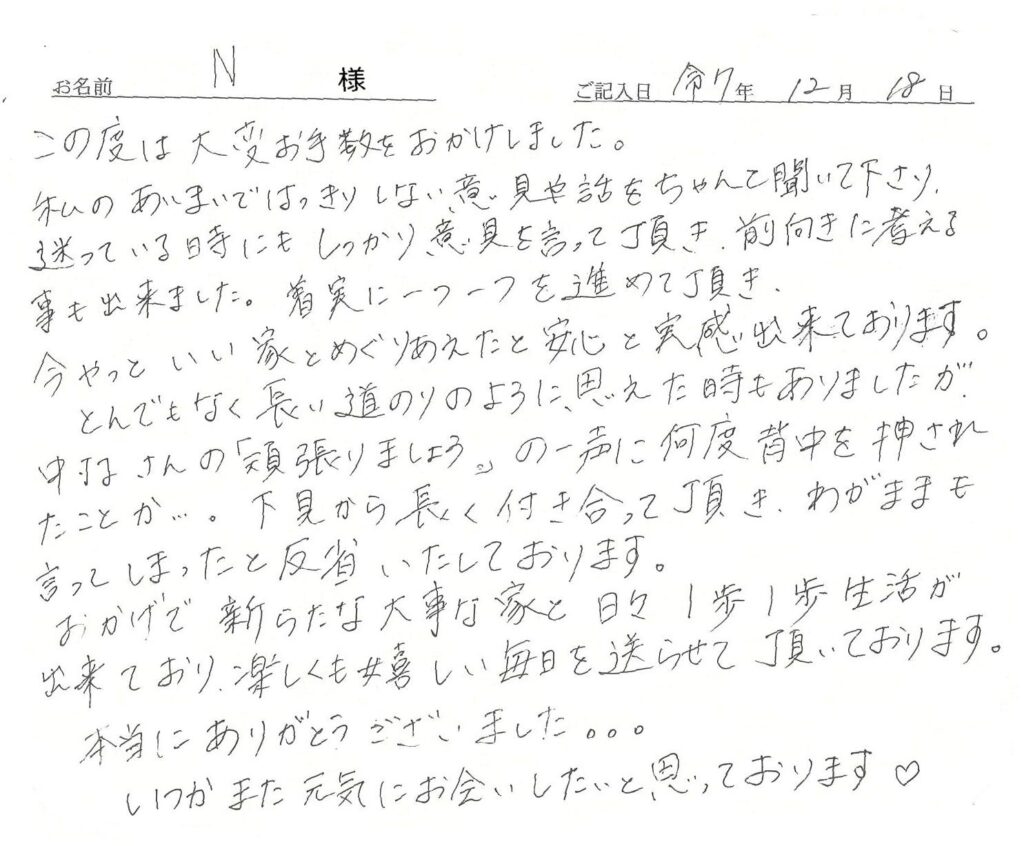 お名前 N 様 ご記入日 令7年 12月 18日
この度は大変お手数をおかけしました。
私のあいまいではっきりしない意見や話をちゃんと聞いて下さり、
迷っている時にもしっかり意見を言って頂き、前向きに考える
事も出来ました。着実に一つ一つを進めて頂き、
今やっといい家とめぐりあえたと安心と実感出来ております。
とんでもなく長い道のりのように思えた時もありましたが、
中村さんの「頑張りましょう。」の一声に何度背中を押され
たことか…。下見から長く付き合って頂き、わがままも
言ってしまったと反省いたしております。
おかげで新らたな大事な家と日々1歩1歩生活が
出来ており、楽しくも嬉しい毎日を送らせて頂いております。
本当にありがとうございました。。。
いつかまた元気にお会いしたいと思っております♡